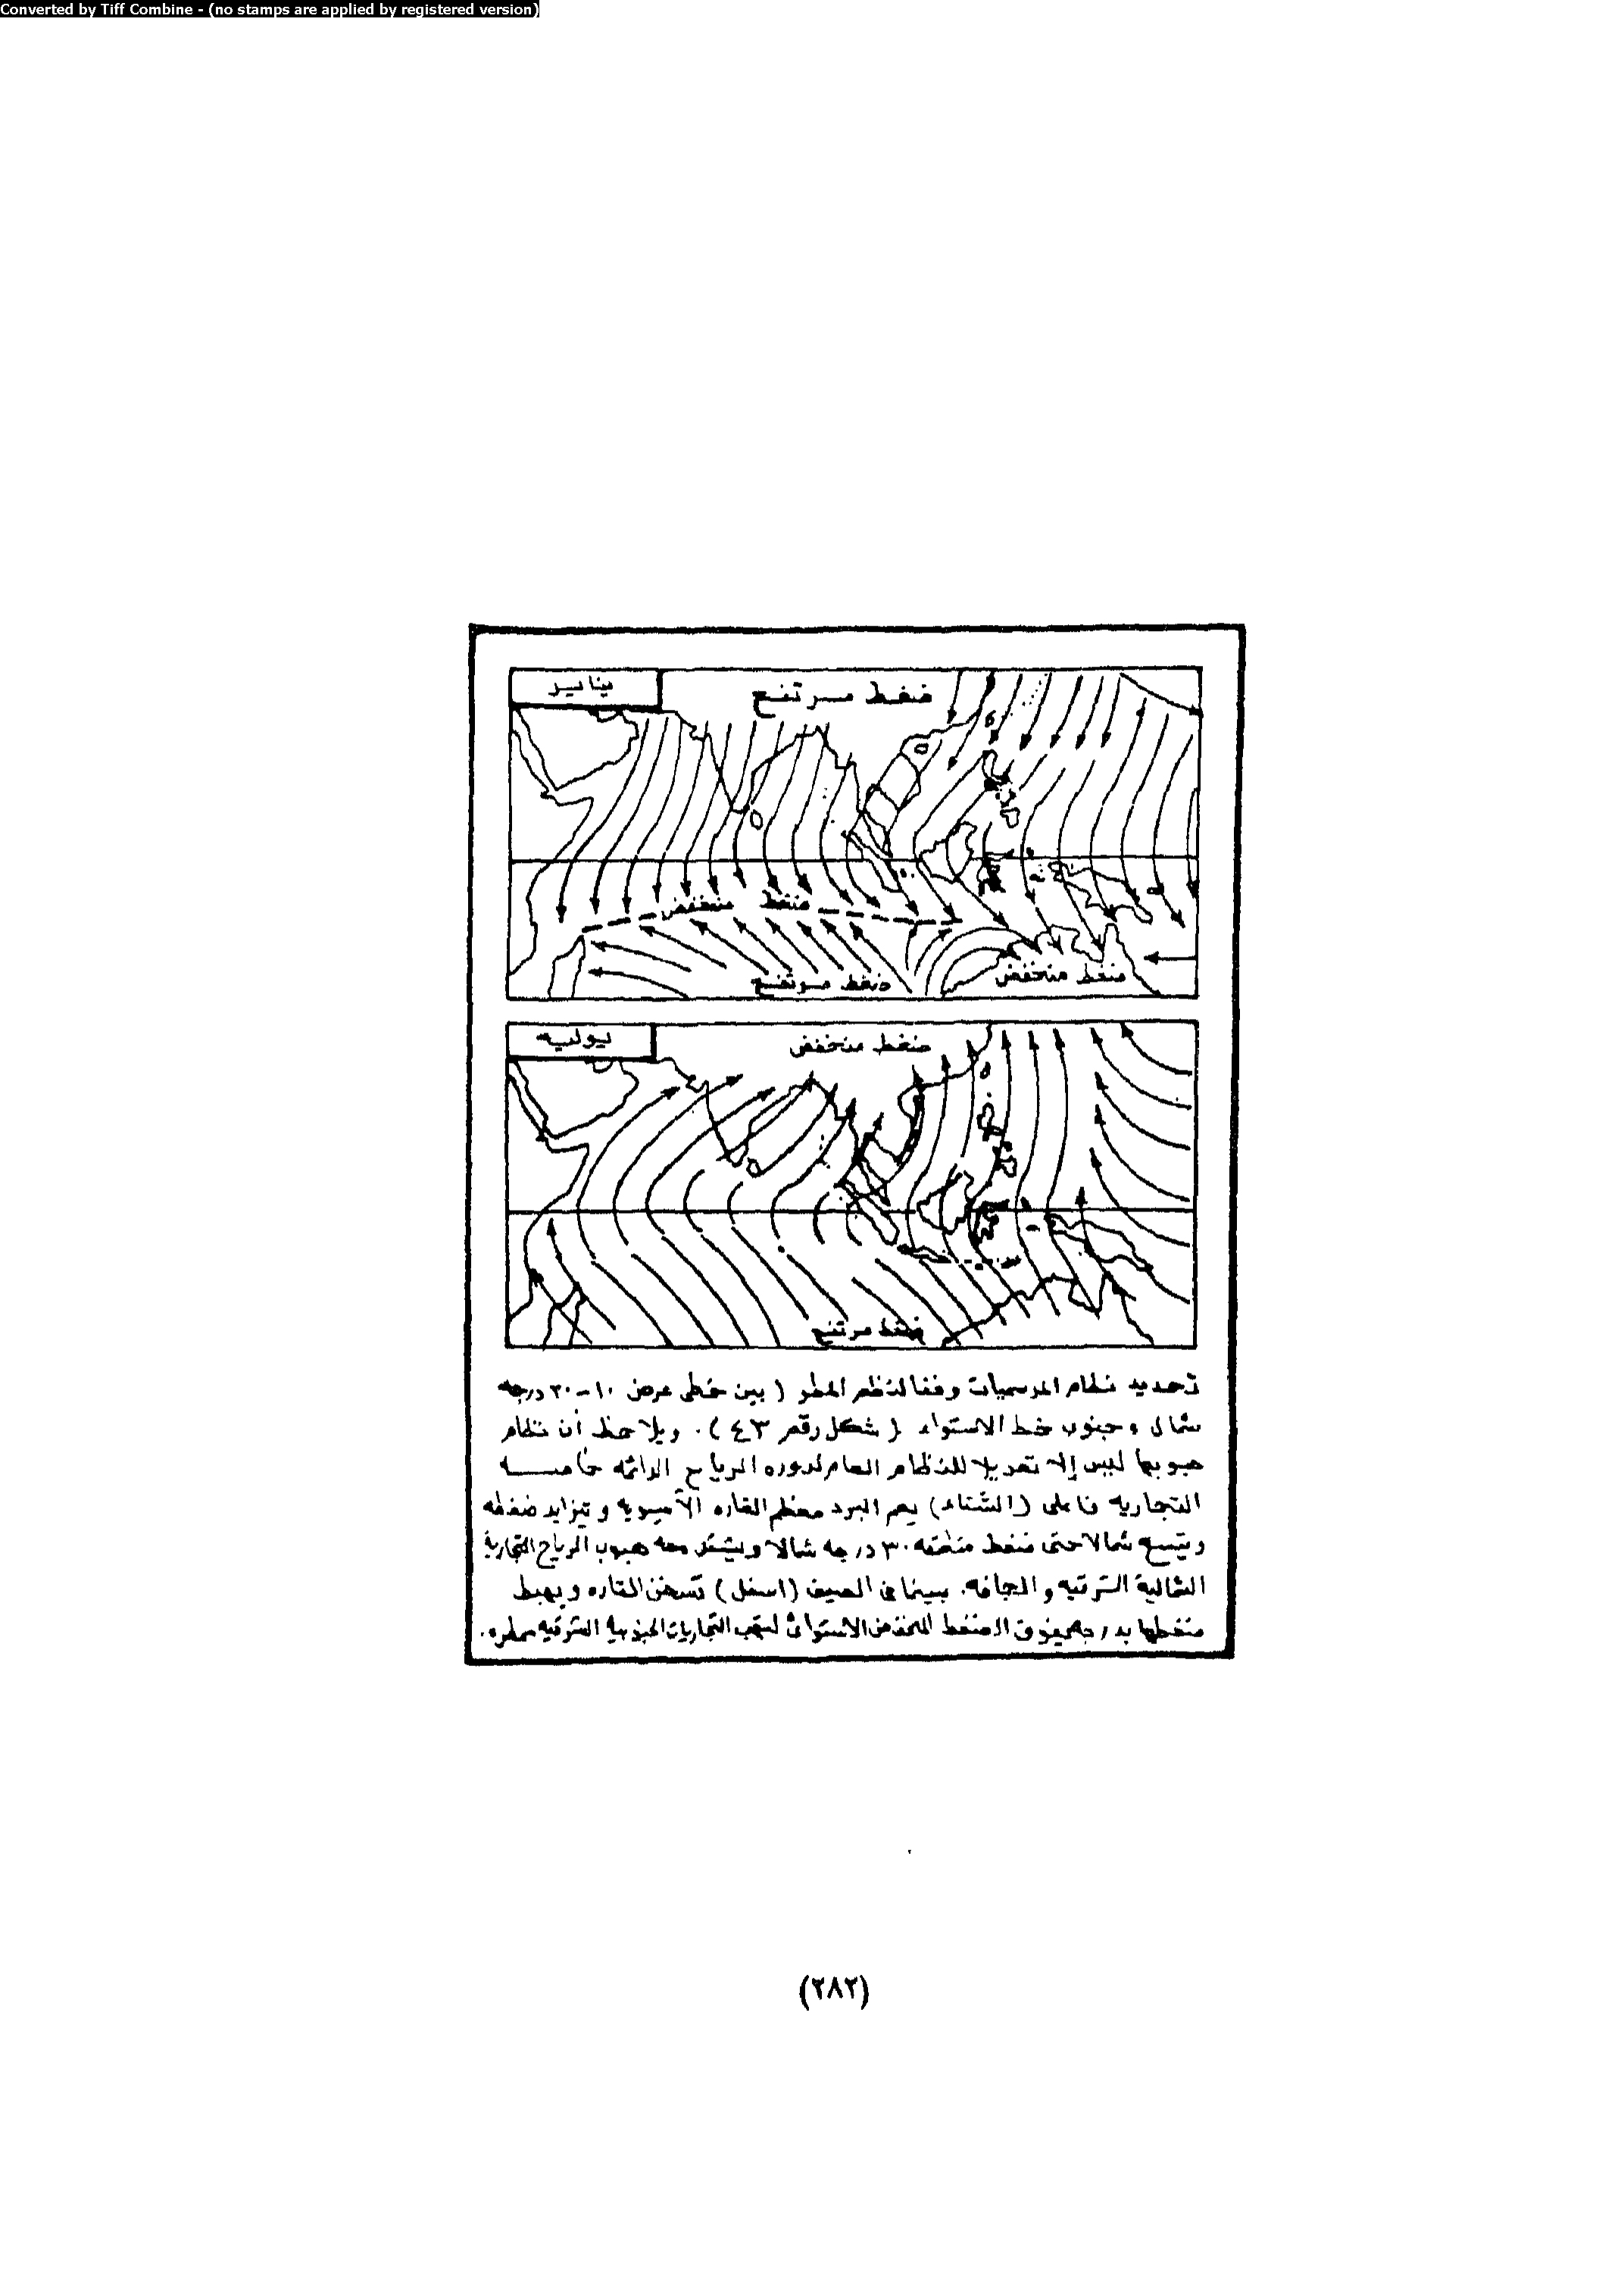 Converted by Tiff Combine - (no stamps are applied by registered version)
يناير
ضغط مرتفع
ضغط منخفض
ضغط مرتفع
ضغط منخفض
يوليه
ضغط منخفض
ضغط مرتفع
تحديد نظام الموسميات وفقا لنظم المطر ( بين خطى عرض ١٠-٣٠ درجه
شمال وجنوب خط الاستواء ( شكل رقم ٤٣ ) . ويلاحظ أن نظام
هبوبها ليس إلا تعديلا للنظام العام لدوره الرياح الدائمه خاصه
التجاريه فاعلى (الشتاء) يعم البرد معظم القاره الآسيويه وتزايد ضغطه
ويتسع شمالا حتى ضغط منطقه ٣٠ درجه شمالا ويشتد معه هبوب الرياح التجارية
الشمالية الشرقيه والجافه. بينما فى الصيف (اسفل) تسخن القاره ويهبط
ضغطها بدرجه تفوق الضغط المنخفض الاستوائى لتهب التجاريات الجنوبيه الشرقيه ممطره.
(٢٨٢)